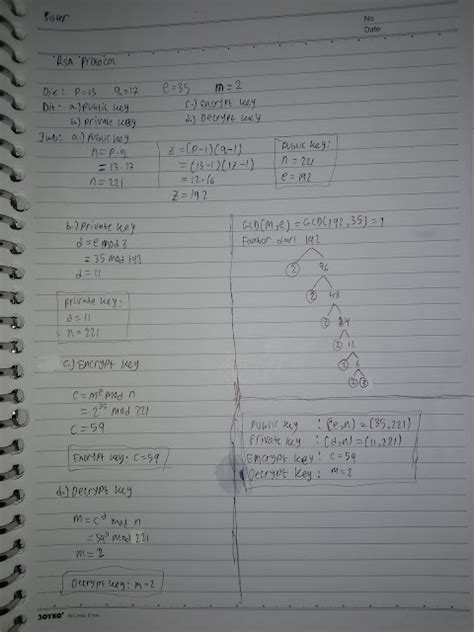 No
Date
RSA Protocol
Dik: p=13 q=17 e=35 m=2
Dit: a.) Public key c.) Encrypt key
b.) Private key d.) Decrypt key
Jwb: a.) Public key
n = p.q
= 13.17
n = 221
z = (p-1)(q-1)
= (13-1)(17-1)
= 12.16
z = 192
Public key:
n = 221
e = 192
b.) Private key
d = e mod z
= 35 mod 192
d = 11
Private key:
d = 11
n = 221
GCD(M,e) = GCD(192,35) = 1
Faktor dari 192
2 96
2 48
2 24
2 12
2 6
2 3
c.) Encrypt key
C = m^e mod n
= 2^35 mod 221
C = 59
Encrypt key: C = 59
Public key : (e,n) = (35,221)
Private key : (d,n) = (11,221)
Encrypt key : C = 59
Decrypt key : m = 2
d.) Decrypt key
M = C^d mod n
= 59^11 mod 221
M = 2
Decrypt key: m = 2
JOYKO